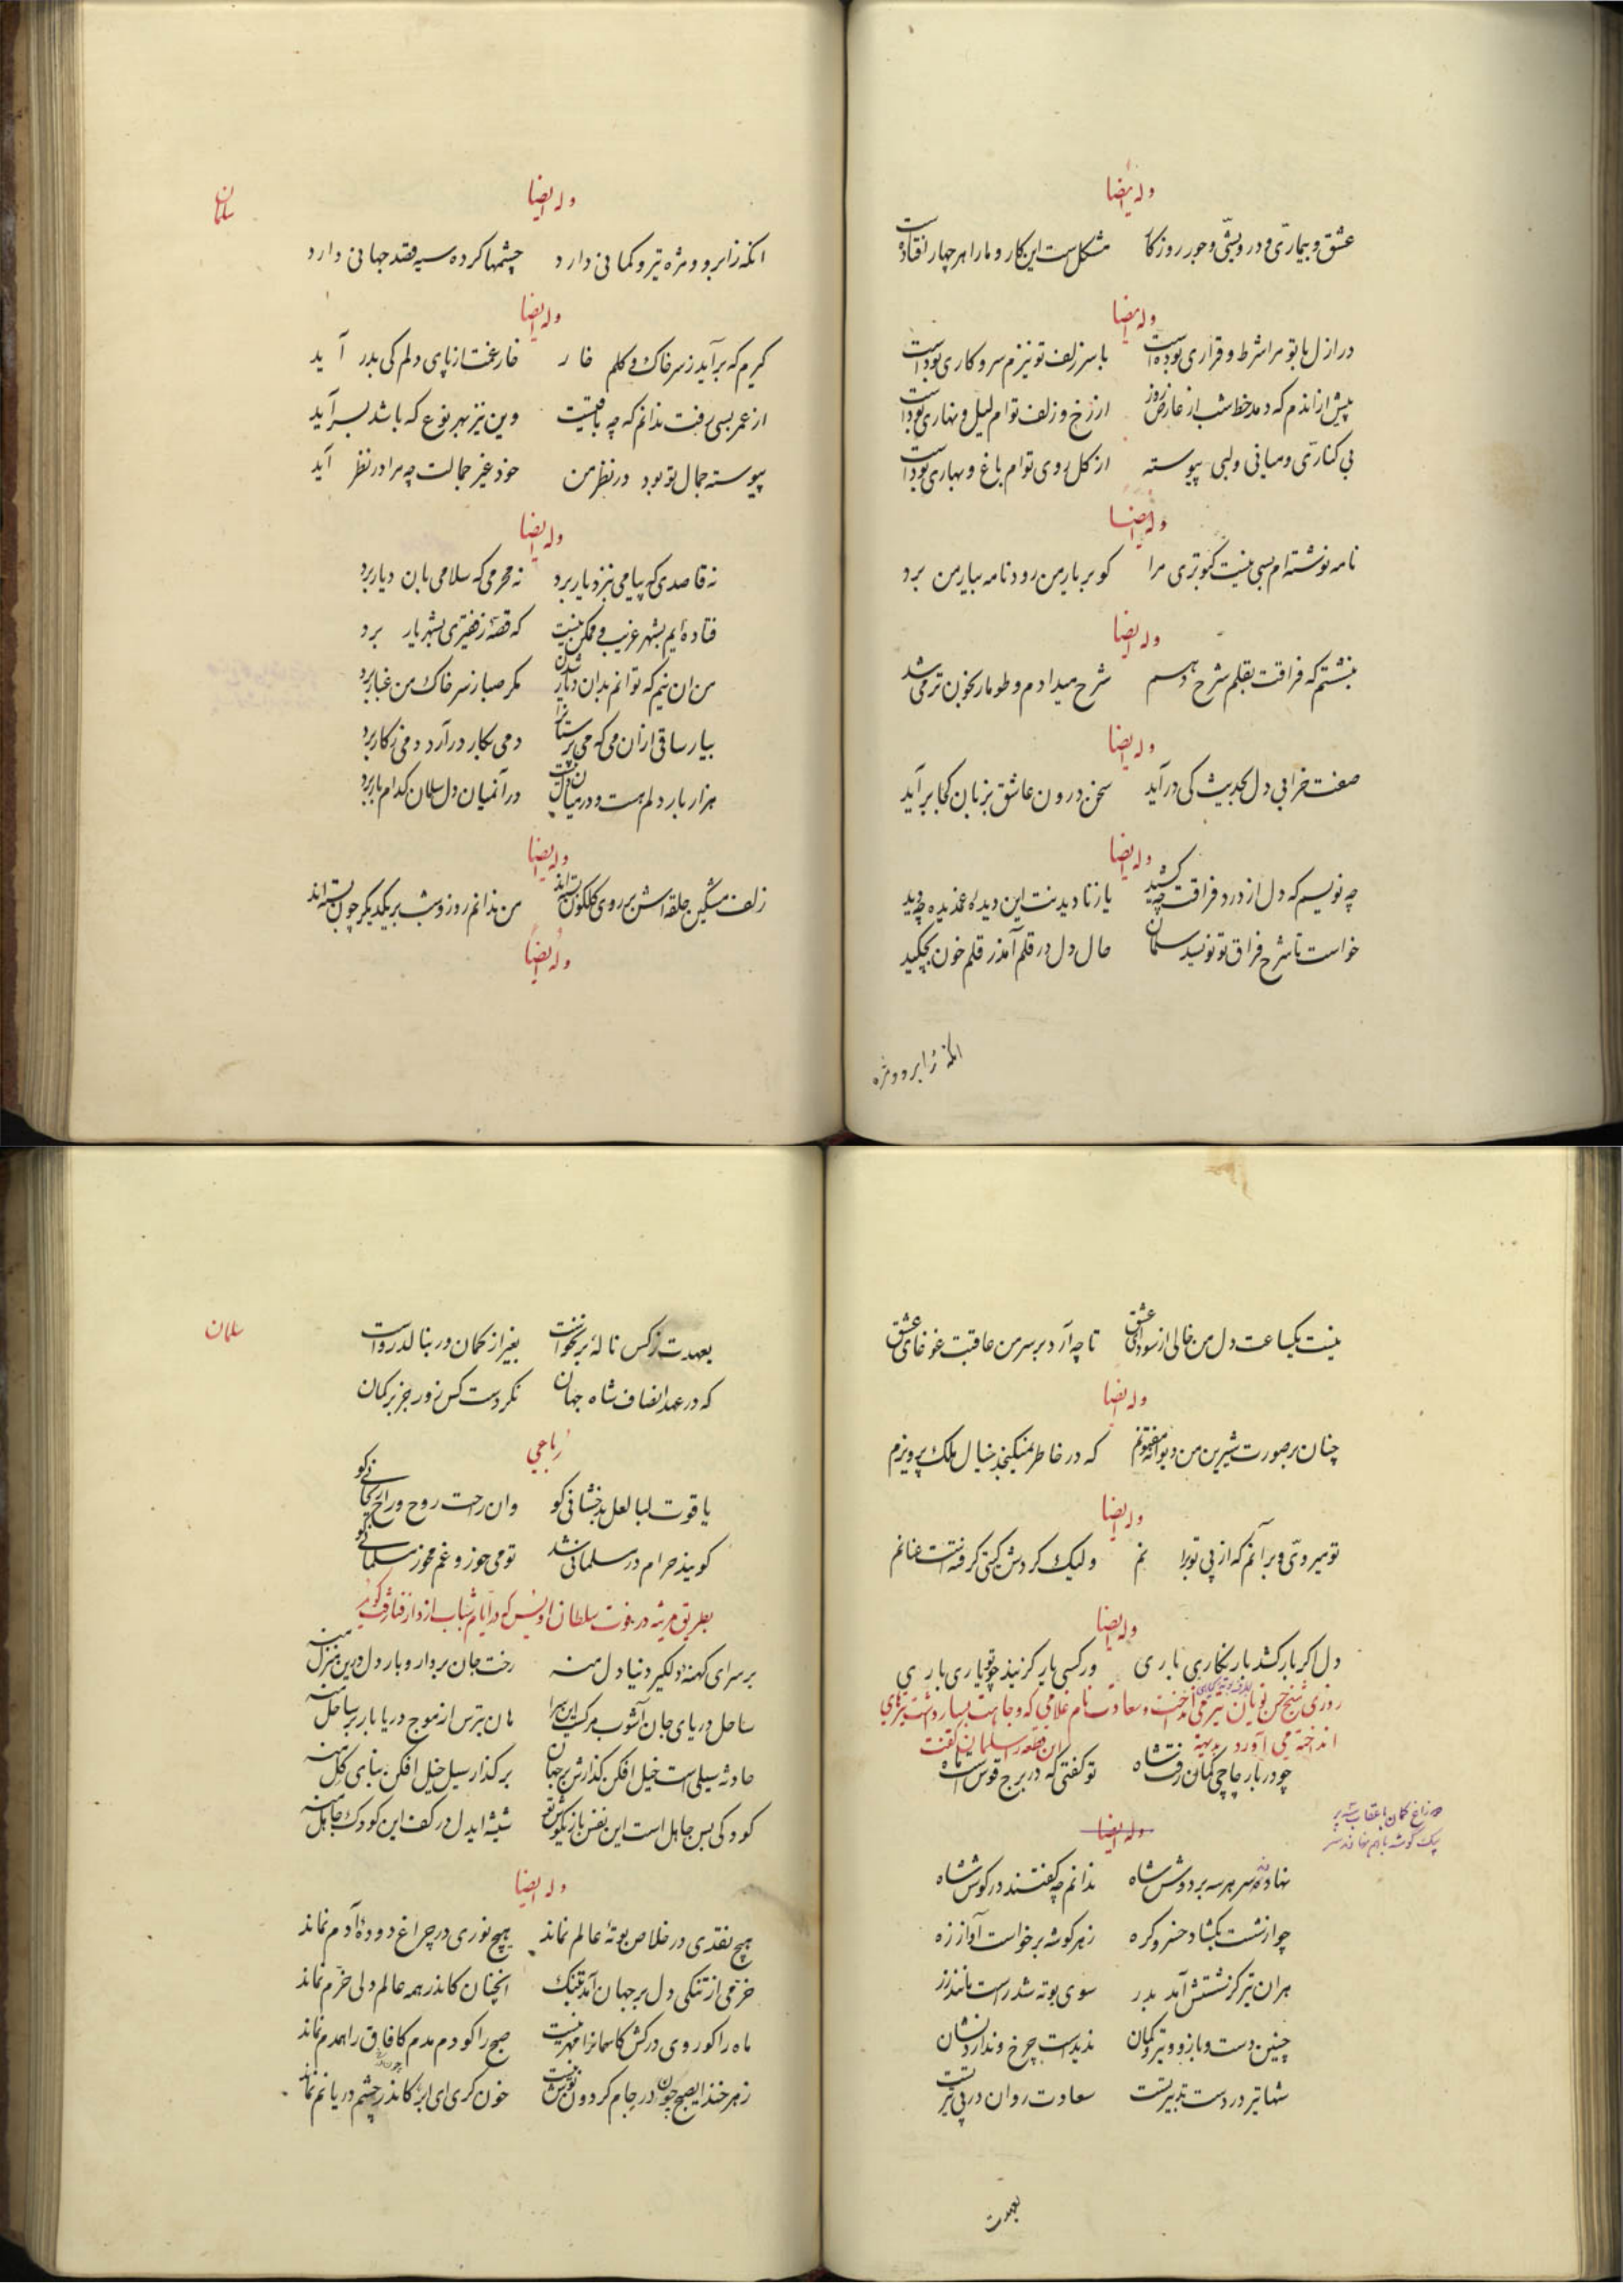 وله ایضا
عشق و بیماری و درویشی و جور روزگار مشکلست این کار و ما را هر چهار افتاده است
وله ایضا
در ازل با تو مرا شرط و قراری بوده است با سر زلف تو نیزم سر و کاری بوده است
پیش از اندم که دمد خط شب از عارض روز از رخ و زلف توام لیل و نهاری بوده است
بی کناری و میانی و لبی پیوسته از گل روی توام باغ و بهاری بوده است
وله ایضا
نامه نوشته ام بسی نیست کبوتری مرا کو بر یار من رود نامه بیار من برد
وله ایضا
بنشستم که فراقت بقلم شرح دهم شرح میدادم و طومار بخون تر می شد
وله ایضا
صفت خرابی دل بحدیث کی درآید سخن درون عاشق بزبان کجا برآید
وله ایضا
چه نویسم که دل از درد فراقت چه کشید یا ز نادیدنت این دیده غمدیده چه دید
خواست تا شرح فراق تو نویسد سلمان حال دل در قلم آمد ز قلم خون بچکید
انکه ز ابرو و مژه
سلمان
وله ایضا
انکه ز ابرو و مژه تیر و کمانی دارد چشمها کرده سیه قصد جهانی دارد
وله ایضا
گیرم که برآید ز سر خاک و گلم خار خار غمت از پای دلم کی بدر آید
از عمر بسی رفت ندانم که چه باقیست وین نیز بهر نوع که باشد بسر آید
پیوسته جمال تو بود در نظر من خود غیر جمالت چه مرا در نظر آید
وله ایضا
نه قاصدی که پیامی بنزد یار برد نه محرمی که سلامی بان دیار برد
فتاده ایم بشهر غریب و ممکن نیست که قصه ز فقیری بشهریار برد
من ان نیم که توانم بدان دیار شدن مگر صبا ز سر خاک من غبار برد
بیار ساقی ازان می که می پرستانرا دمی بکار درآرد دمی ز کار برد
هزار بار دلم هست و در میان دل نیست در آنمیان دل سلمان کدام بار برد
وله ایضا
زلف مشگین حلقه اش بر روی گلگون بسته اند من ندانم روز و شب بر یکدیگر چون بسته اند
وله ایضا
نیست یکساعت دل من خالی از سودای عشق تا چه آرد بر سر من عاقبت غوغای عشق
وله ایضا
چنان بر صورت شیرین من دیوانه مفتونم که در خاطر نمیگنجد خیال ملک پرویزم
وله ایضا
تو میروی و برآنم که از پی تو برانم ولیک گردش گیتی گرفته است عنانم
وله ایضا
دل اگر بار کشد بار نگاری باری ور کسی یار گزیند چو تو یاری باری
روزی شیخ حسن نویان تیر می انداخت و سعادت نام غلامی که وجاهت بسیار داشت تیرهای
انداخته می آورد بدیهه این قطعه را سلمان گفت
چو در بار چاچی کمان رفت شاه تو گفتی که در برج قوس است ماه
دو زاغ کمان با عقاب سه پر
بیک گوشه با هم نهادند سر
وله ایضا
نهادند سر هر سه بر دوش شاه ندانم چه گفتند در گوش شاه
چو از شست بگشاد خسرو گره ز هر گوشه برخواست آواز زه
هران تیر کز شستش آمد بدر سوی بوته شد راست مانند زر
چنین دست و بازو و تیر و کمان ندیدست چرخ و ندارد نشان
شها تیر در دست تدبیر تست سعادت روان در پی تیر تست
بعهدت
سلمان
بعهدت ز کس ناله برنخواست بغیر از کمان ور بنالد رواست
که در عهد انصاف شاه جهان نکردست کس زور جز بر کمان
رباعی
یاقوت لبا لعل بدخشانی کو وان راحت روح و راح ریحانی کو
گویند حرام در سلمانی شد تو می خور و غم مخور سلمانی کو
بطریق مرثیه در فوت سلطان اویس که در ایام شباب از دار فنا رفت گوید
بر سرای کهنه دلگیر دنیا دل منه رخت جان بردار و بار دل درین منزل منه
ساحل دریای جان آشوب مرگست این سرا هان بترس از موج دریا بار بر ساحل منه
حادثه سیلی است خیل افکن گذارش بر جهان بر گذار سیل خیل افکن بنای گل منه
کودکی بس جاهل است این نفس بازیگوش تو شیشه ایدل در کف این کودک جاهل منه
وله ایضا
هیچ نقدی در خلاص بوته عالم نماند هیچ نوری در چراغ دوده آدم نماند
خرمی از تنگی دل بر جهان آمد بتنگ انچنان کاندر همه عالم دلی خرم نماند
ماه را گو روی درکش کاسمانرا مهر نیست صبح را گو دم مدم کافاق را همدم نماند
زهرخند ایصبح چون در جام گردون نوش نیست خون گری ای ابر کاندر چشم دریا نم نماند